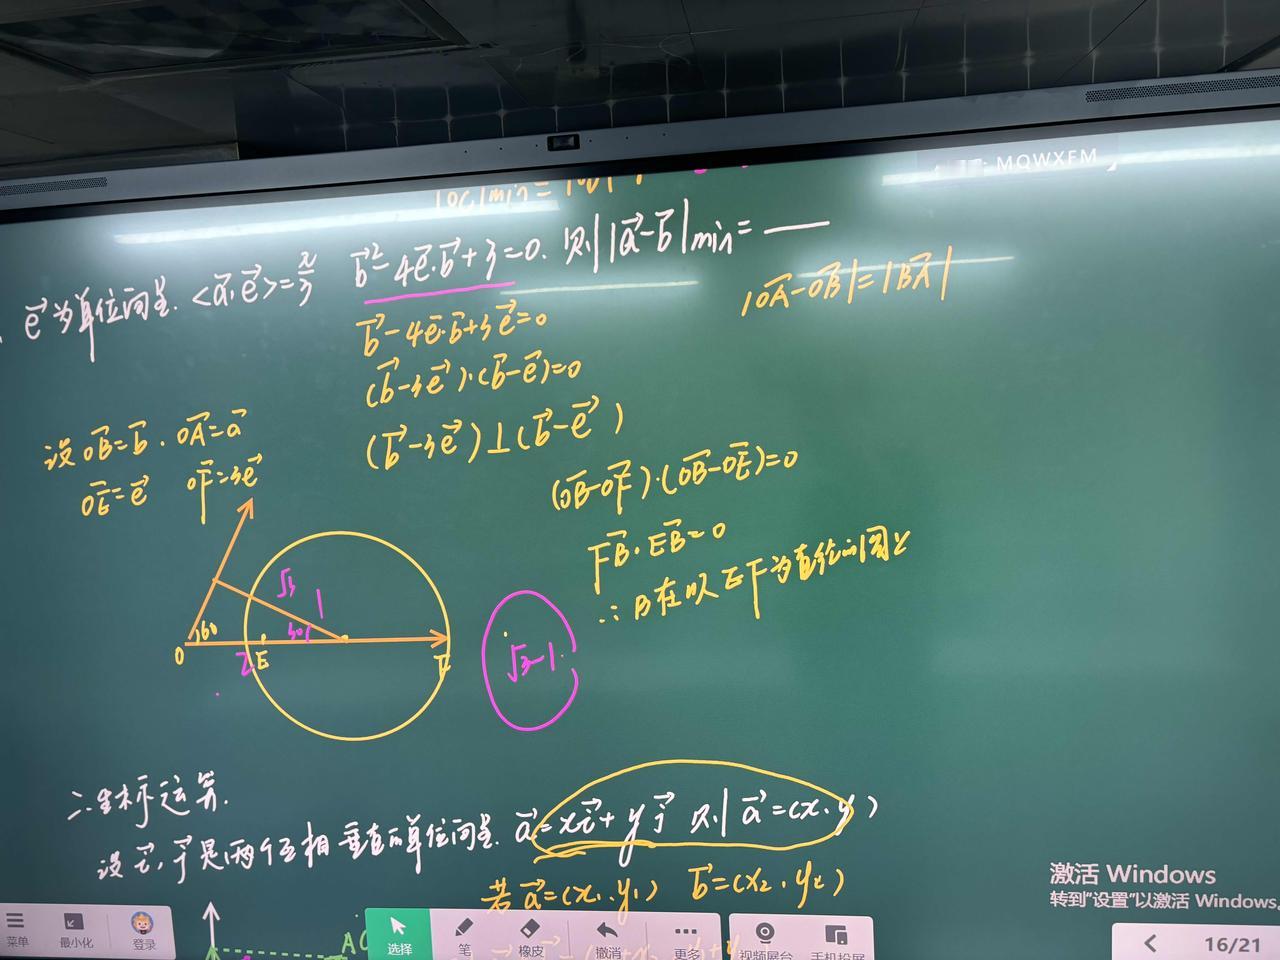 MQWXFM
|OC|min=
e⃗为单位向量.<a⃗,e⃗>=π/3 b⃗²-4e⃗·b⃗+3=0.则|a⃗-b⃗|min=____
|OA⃗-OB⃗|=|BA⃗|
b⃗-4e⃗·b⃗+3e⃗=0
(b⃗-3e⃗)·(b⃗-e⃗)=0
(b⃗-3e⃗)⊥(b⃗-e⃗)
设OB⃗=b⃗.OA⃗=a⃗
OE⃗=e⃗ OF⃗=3e⃗
(OB⃗-OF⃗)·(OB⃗-OE⃗)=0
FB⃗·EB⃗=0
∴B在以EF为直径的圆上
√3 1
60 30
O 2 E F
√3-1
二.坐标运算.
设i⃗,j⃗是两个互相垂直的单位向量.a⃗=xi⃗+yj⃗ 则a⃗=(x.y)
若a⃗=(x₁.y₁) b⃗=(x₂.y₂)
激活 Windows
转到“设置”以激活 Windows。
菜单 最小化 登录 选择 笔 橡皮 撤消 更多 视频展台 手机投屏
16/21